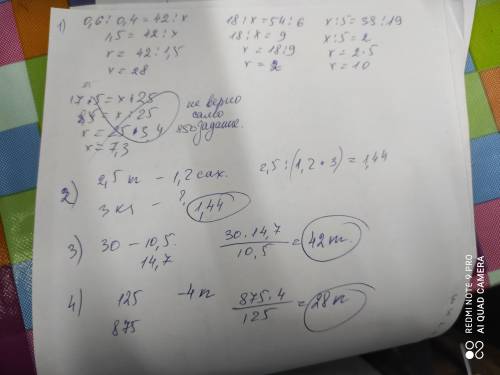 1) 0,6 : 0,4 = 42 : x
1,5 = 42 : x
x = 42 : 1,5
x = 28
18 : x = 54 : 6
18 : x = 9
x = 18 : 9
x = 2
x : 5 = 38 : 19
x : 5 = 2
x = 2 · 5
x = 10
17 · 5 = x · 25
85 = x · 25
x = 25 · 3,4
x = 7,3
не верно
само
задание.
2) 2,5 кг – 1,2 сах.
3 кг – ? 1,44
2,5 : (1,2 · 3) = 1,44
3) 30 – 10,5.
14,7
30 · 14,7 / 10,5 = 42 т.
4) 125 – 4 т
875
875 · 4 / 125 = 28 т
REDMI NOTE 9 PRO
AI QUAD CAMERA